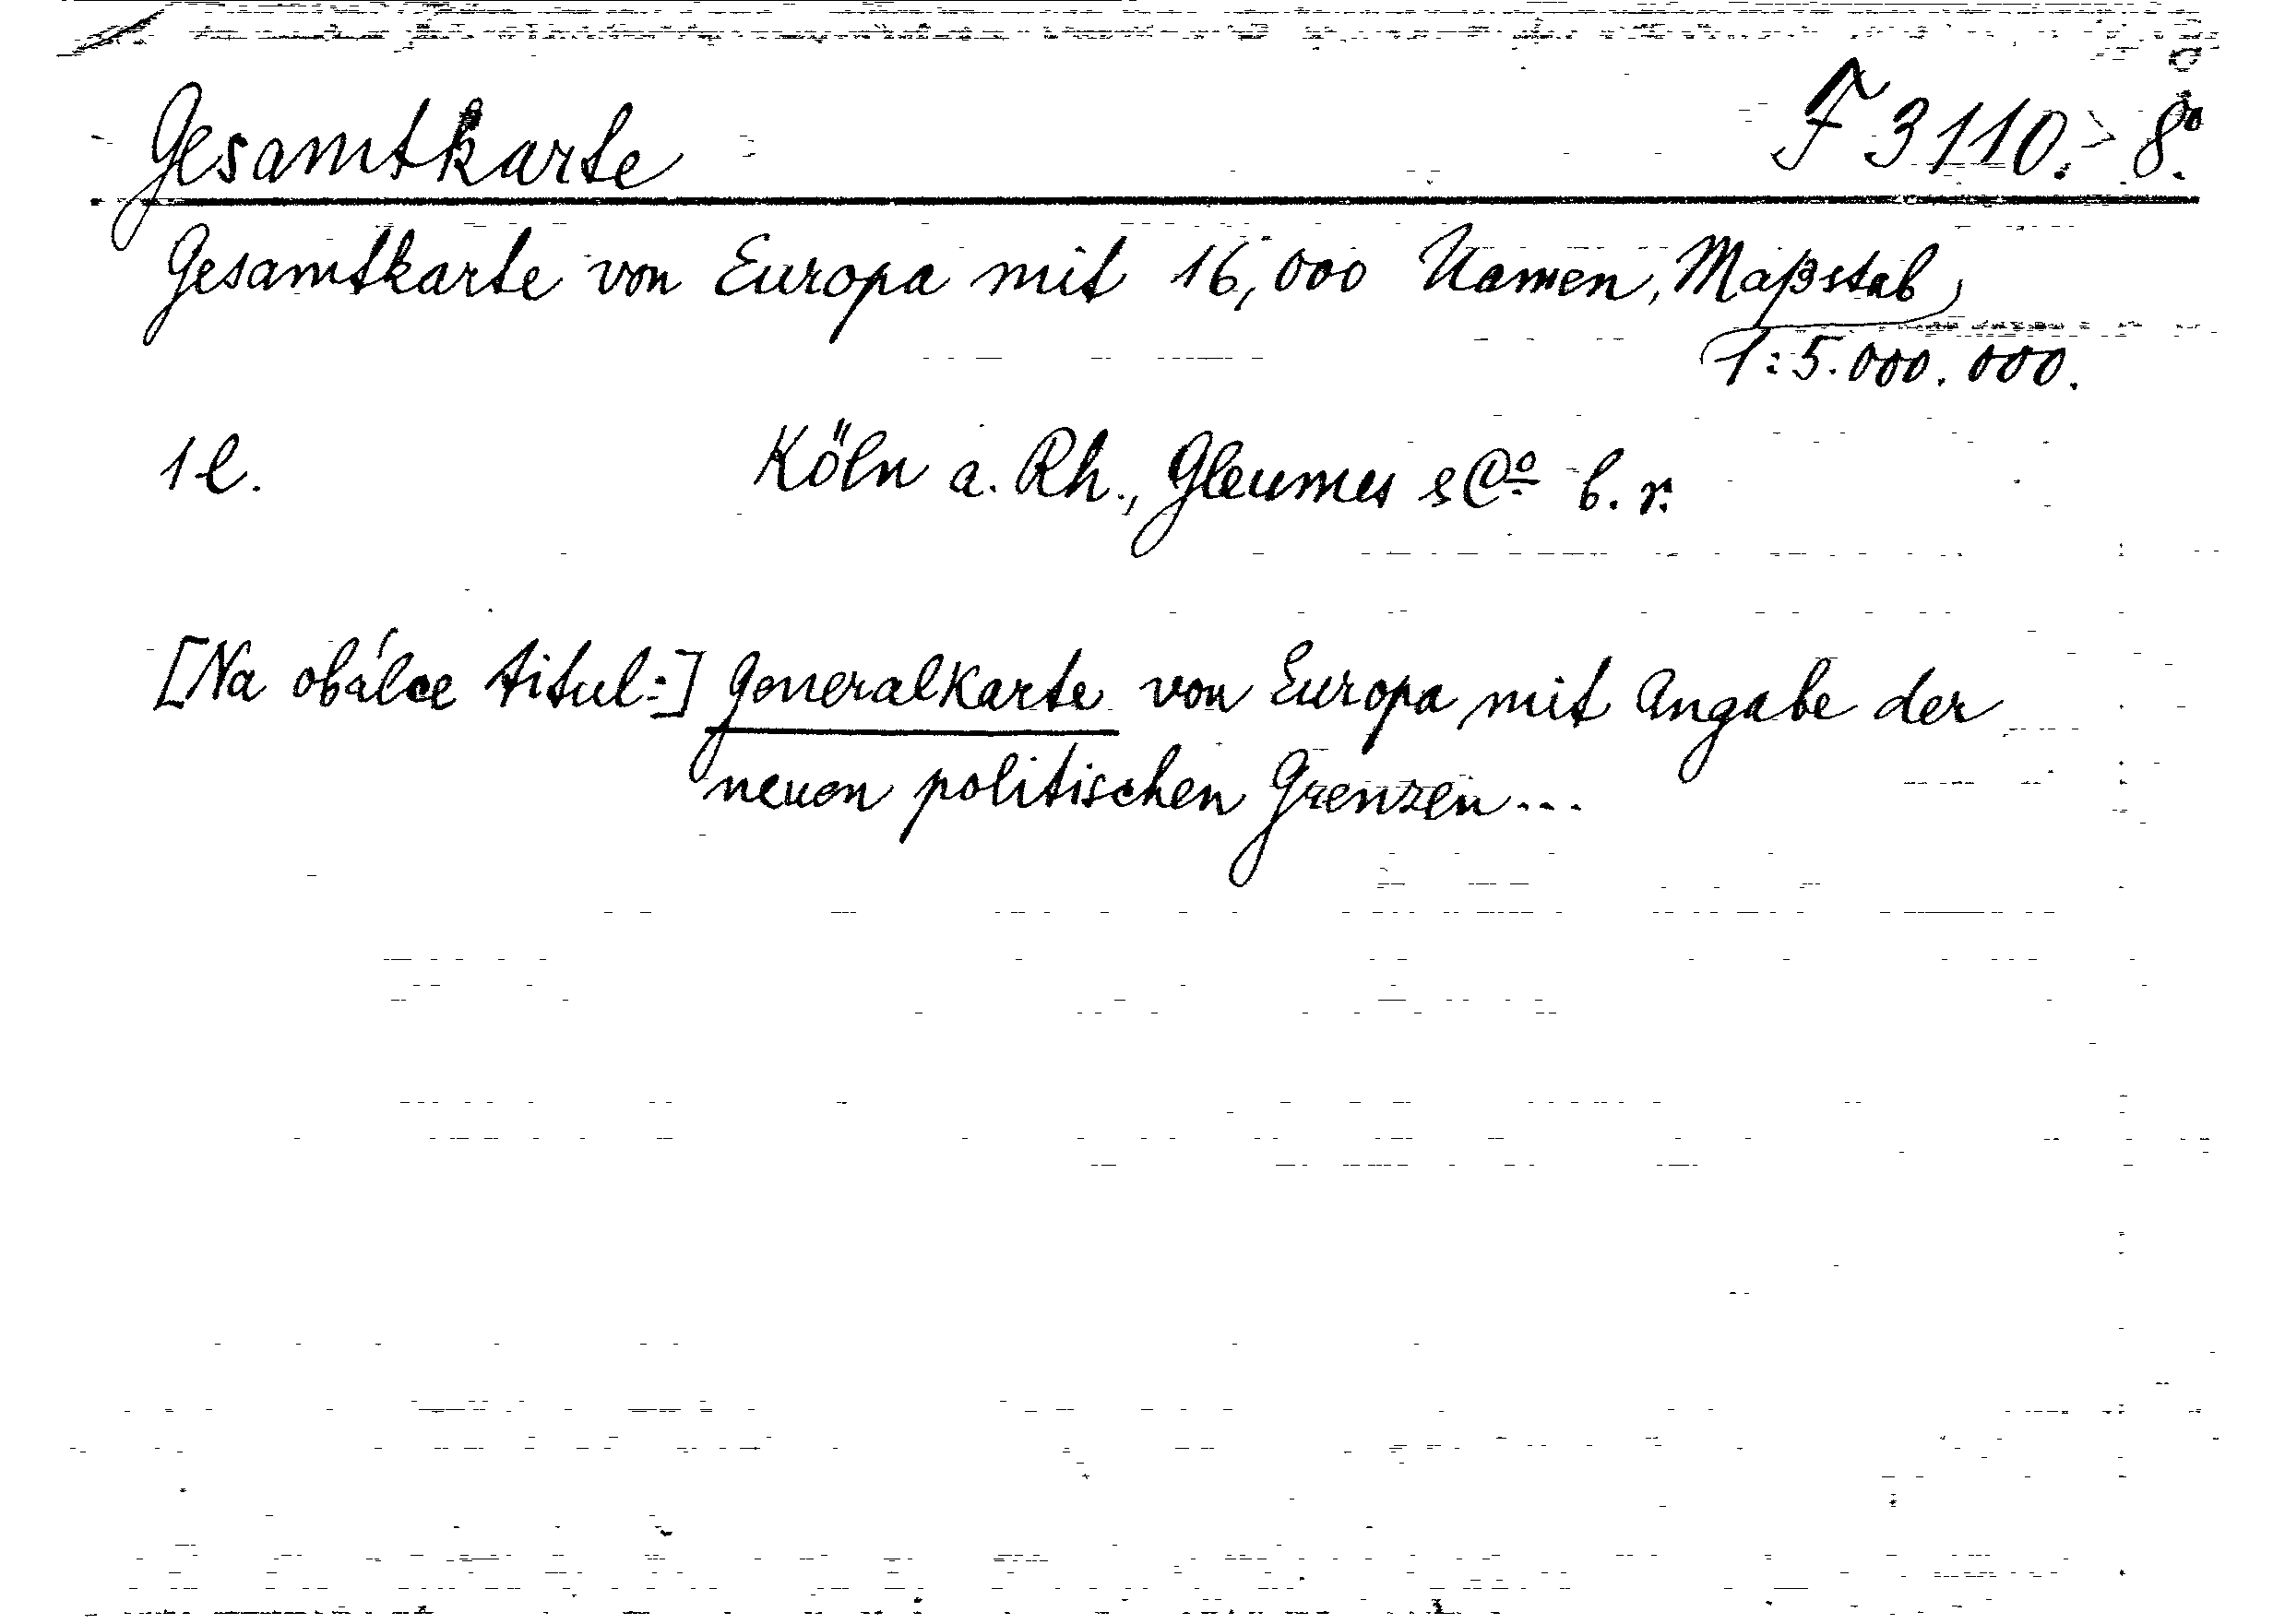 Gesamtkarte F 3110. 8°.
Gesamtkarte von Europa mit 16,000 Namen, Maßstab
1:5.000.000.
1 l. Köln a. Rh., Gleumes & Co. b. r.
[Na obálce titul:] Generalkarte von Europa mit Angabe der
neuen politischen Grenzen...